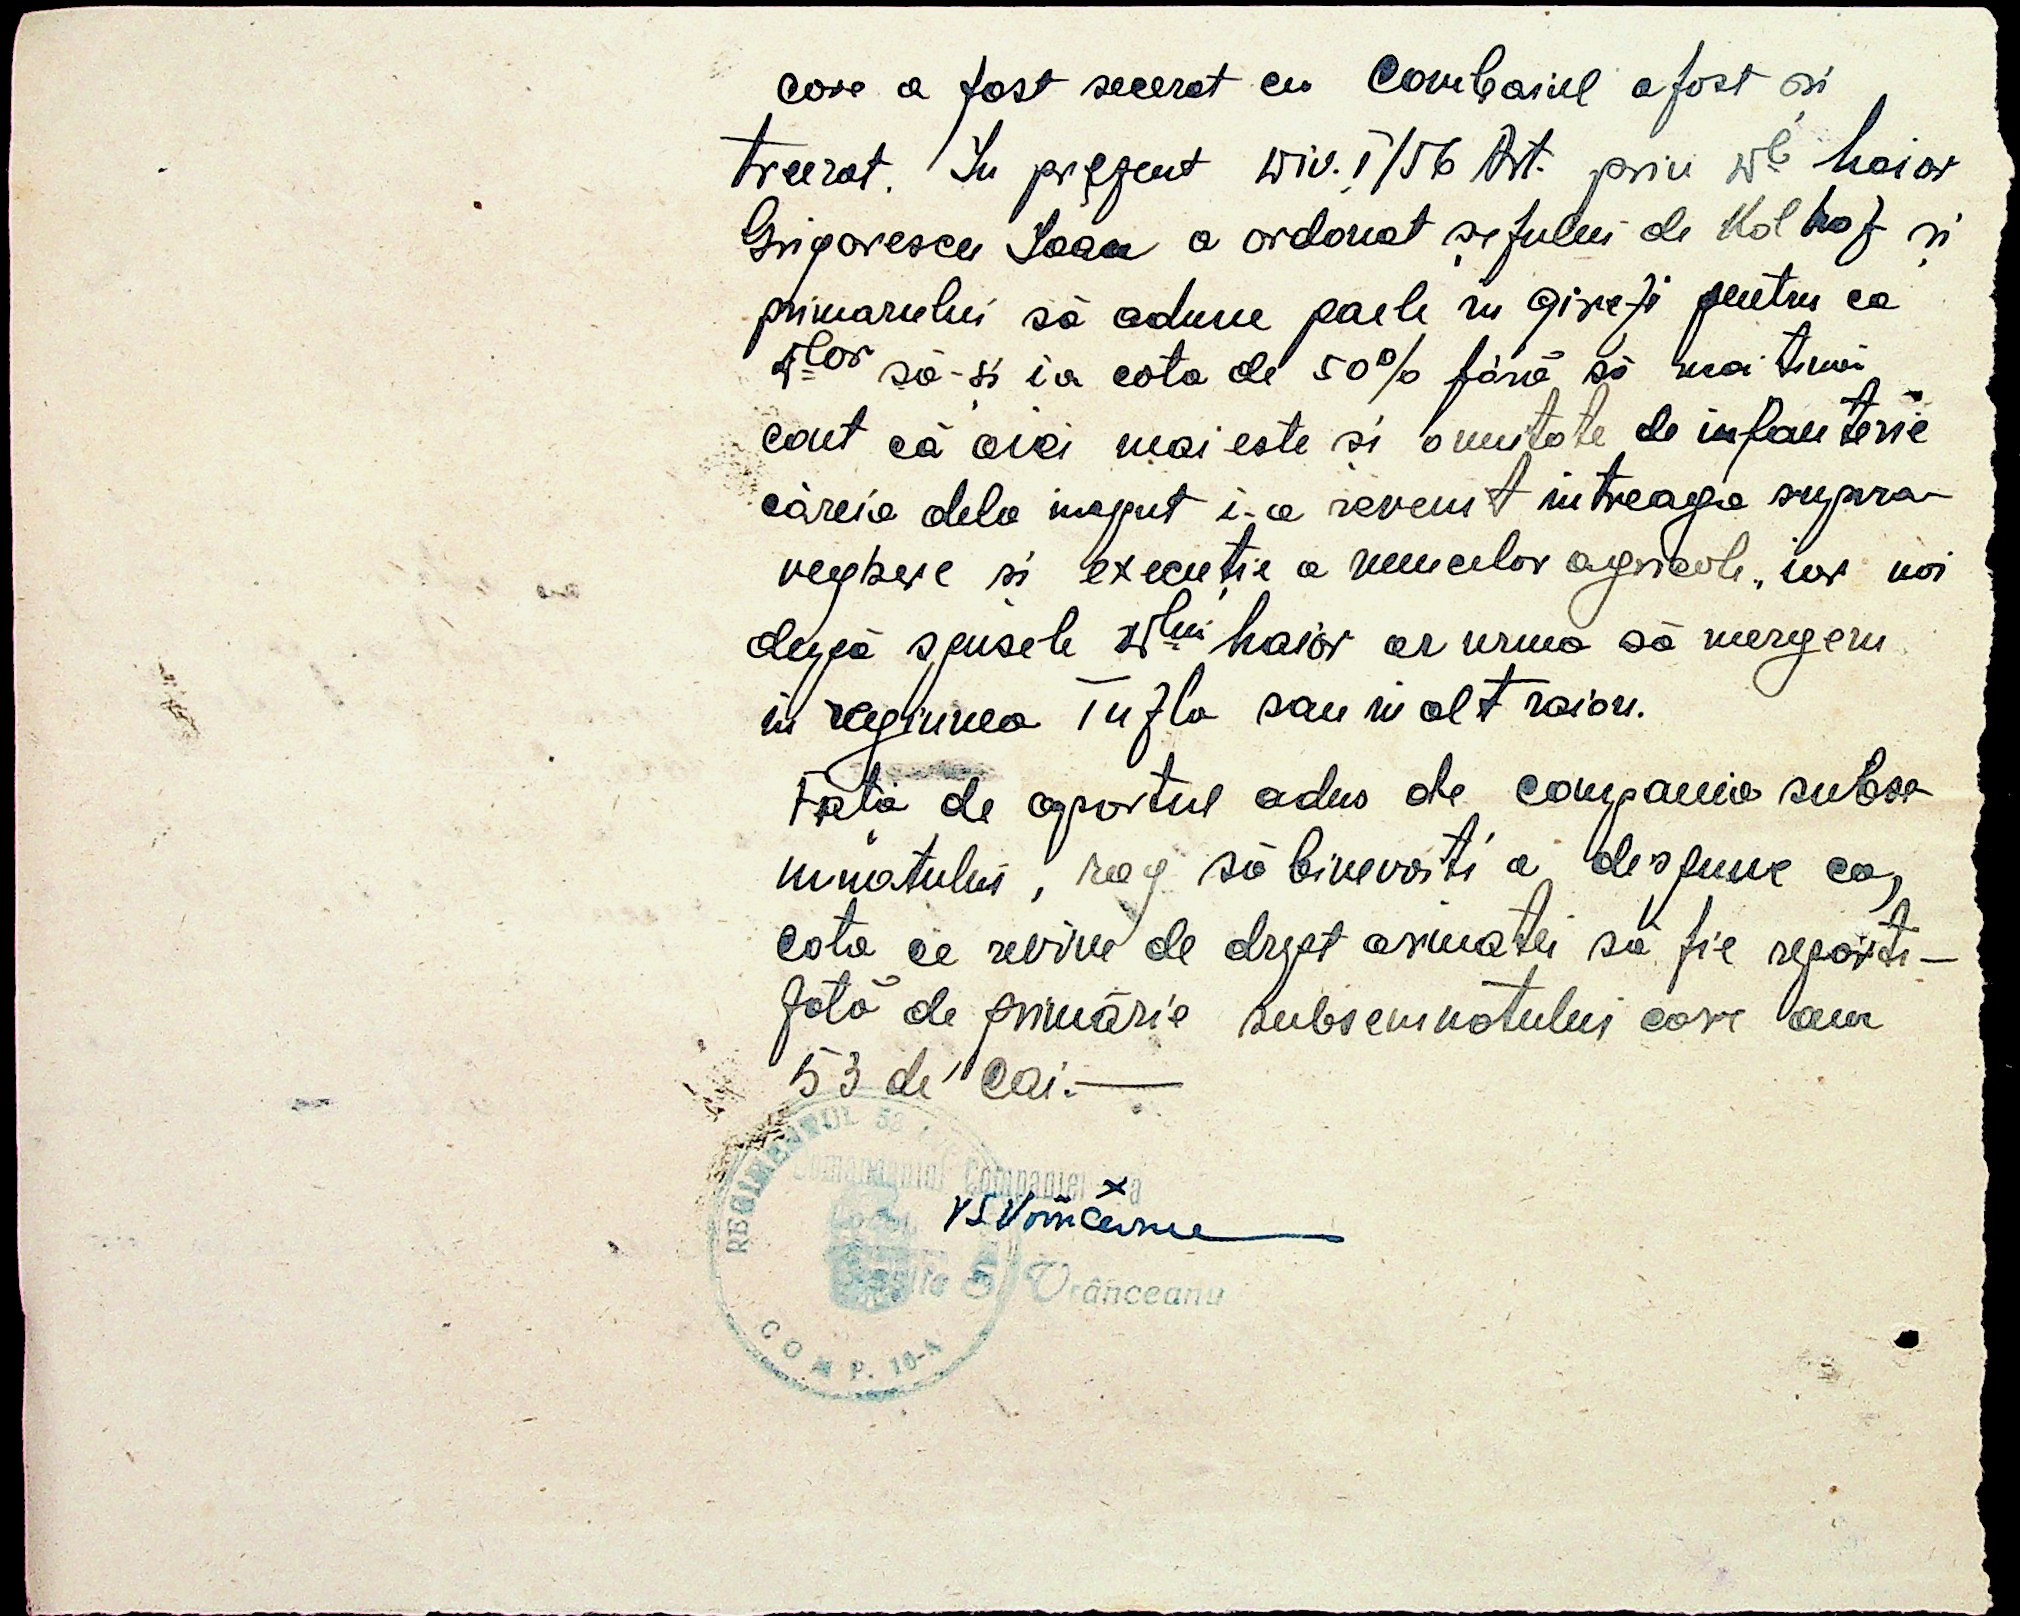 care a fost secerat cu Combainul a fost și
treerat. In prezent Div. I/56 Art. prin Dl Maior
Grigorescu Ioan a ordonat șefului de Kolhoz și
primarului să adune paele in girezi pentru ca
Dlor să-și ia cota de 50% fără să mai tină
cont că aici mai este si o unitate de infanterie
căreia dela inceput i-a revenit intreaga supra-
veghere si execuție a muncilor agricole, iar noi
după spusele Dlui Maior ar urma să mergem
in regiunea Tuzla sau in alt raion.
Fată de aportul adus de compania subse-
mnatului, rog să binevoiti a dispune ca,
cota ce revine de drept armatei să fie reparti-
zată de primărie subsemnatului care am
53 de cai.—
REGIMENTUL 38
Comandantul Companiei
Vasile S. Vrânceanu
COMP. 10-A